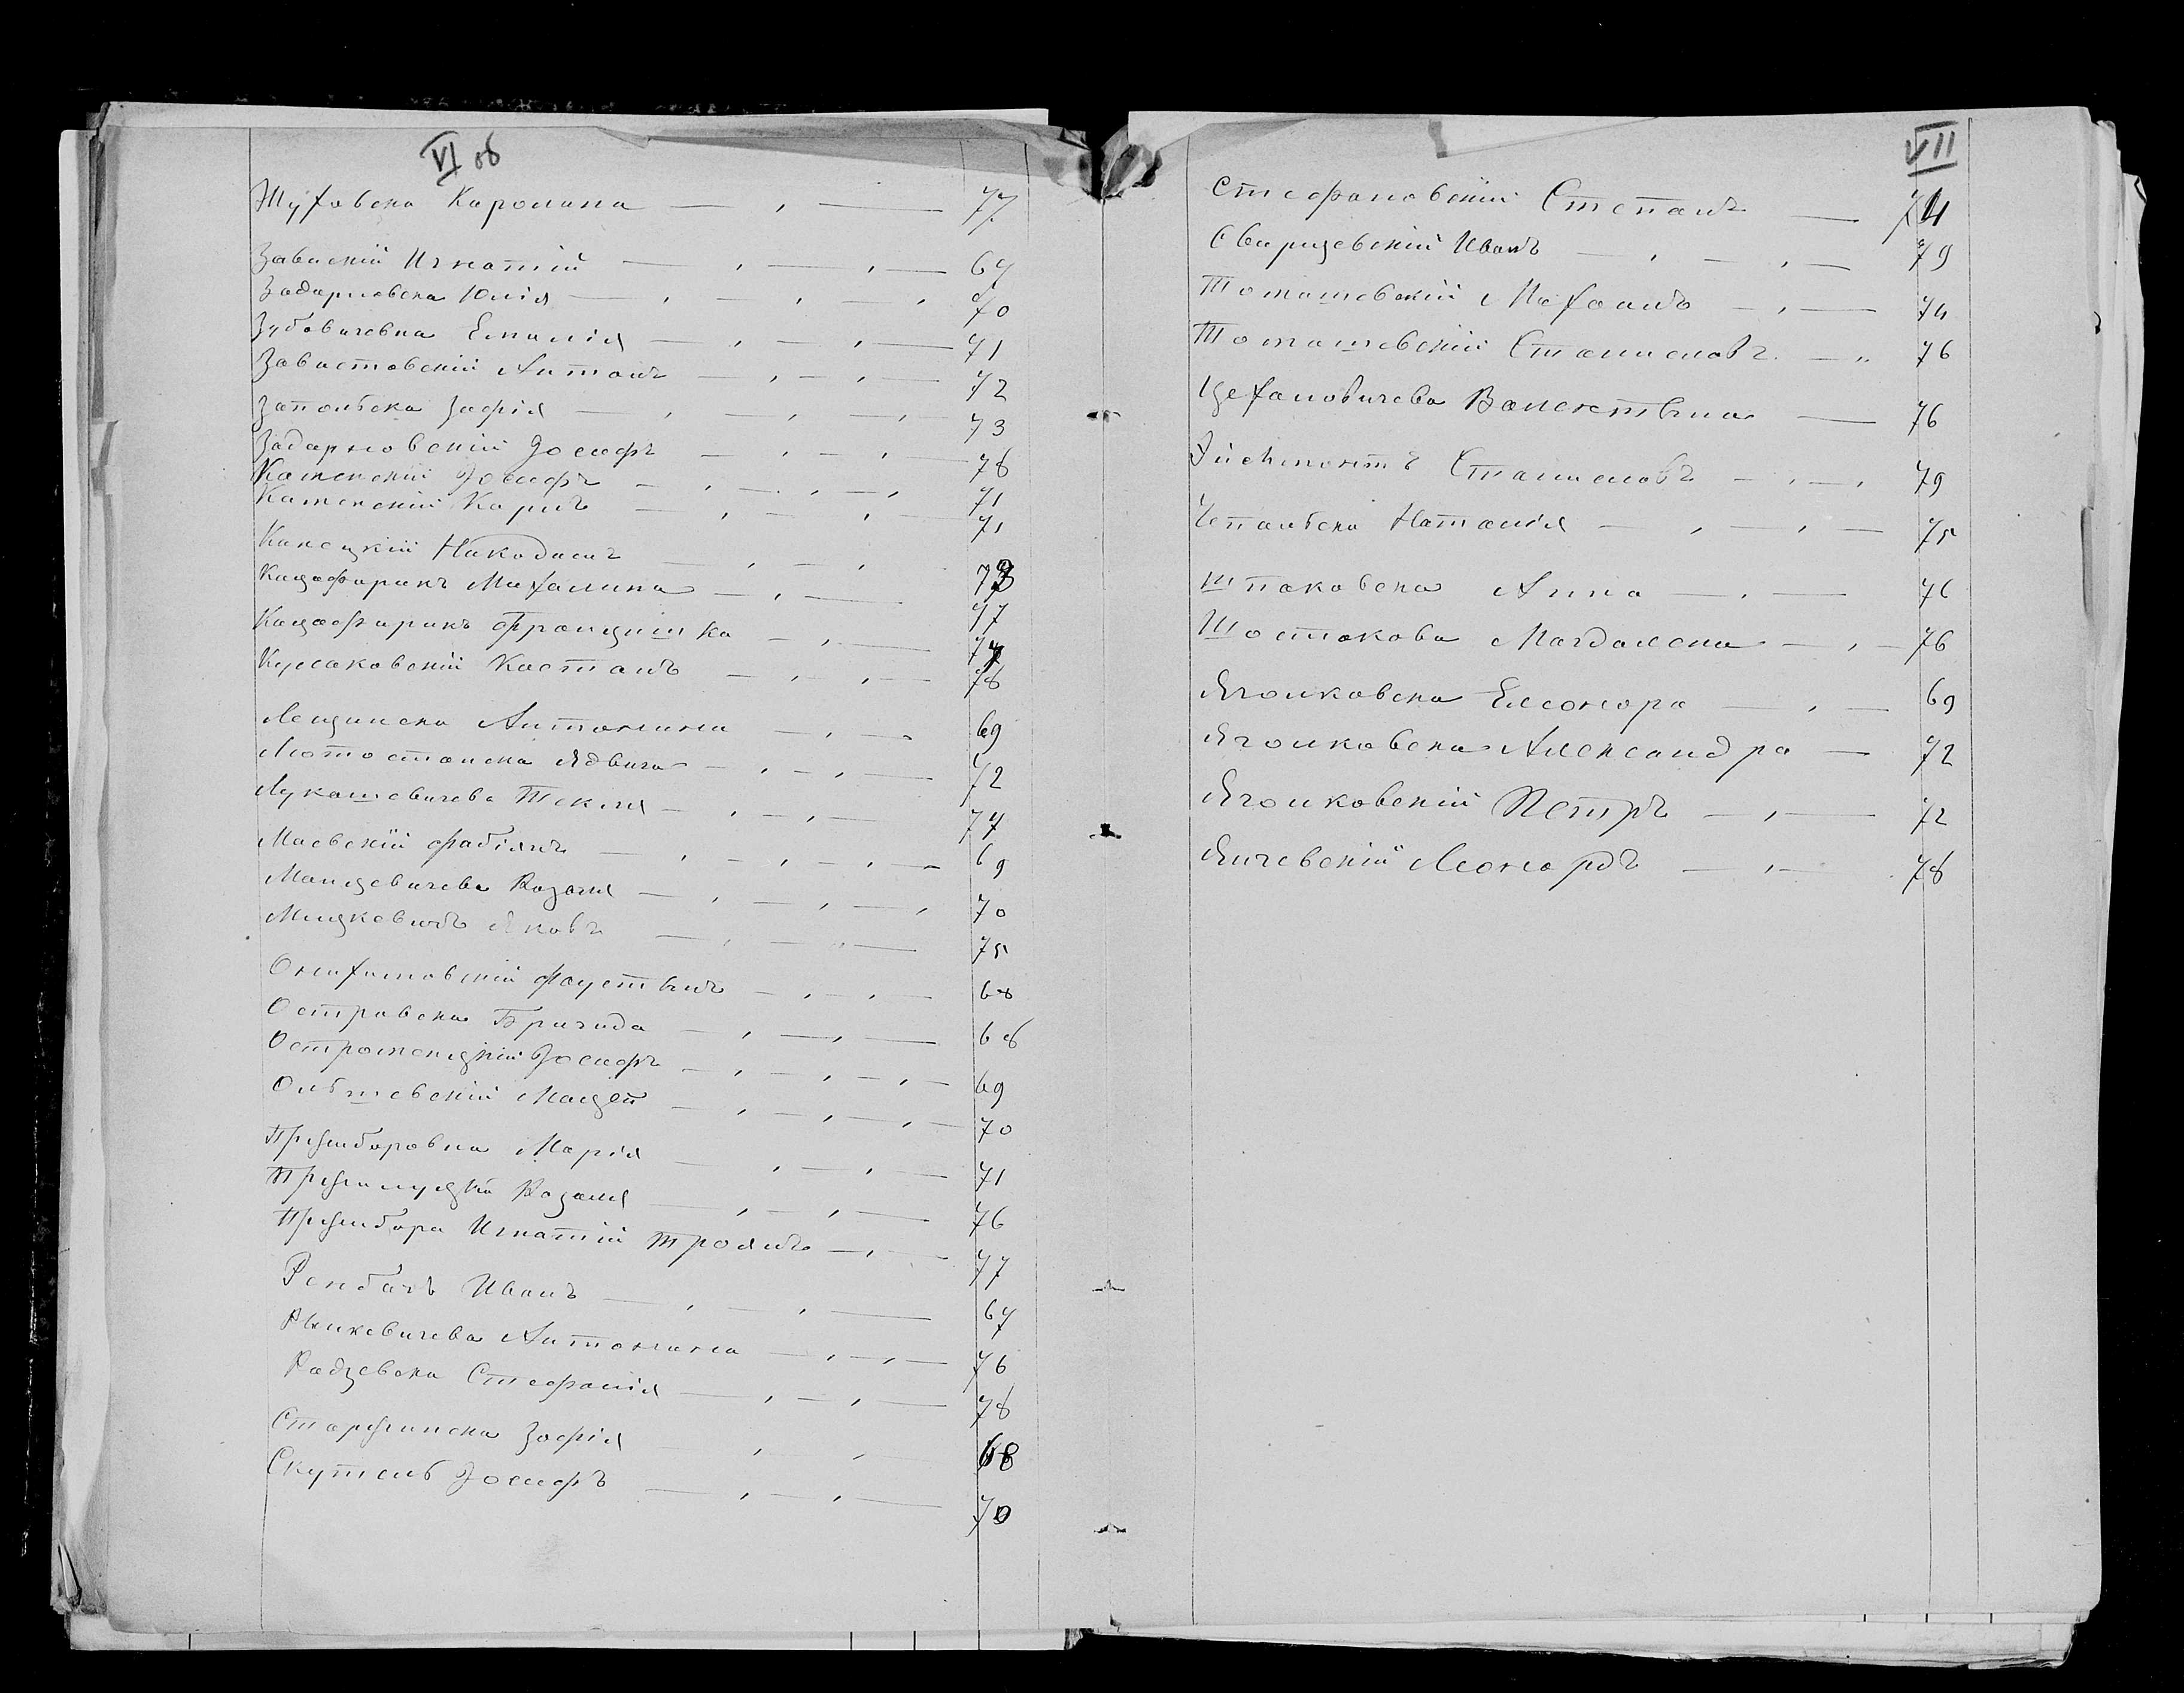 VI об
Жуховска Каролина — 77
Завиский Игнатій — 67
Задарновска Юлія — 70
Зубовичевна Емилія — 71
Завистовскій Антонъ — 72
Запольска Зофія — 73
Задарновскій Іосифъ — 78
Каменскій Іосифъ — 71
Каменскій Карлъ — 71
Канецкій Никодимъ — 73
Кацафарикъ Михалина — 77
Кацафарикъ Францишка — 77
Кулаковскій Костанъ — 78
Лещинска Антонина — 69
Лютостанска Ядвига — 72
Лукашевичева Текля — 77
Маевскій Фабіянъ — 69
Манцевичева Розалія — 70
Мицкевичъ Яковъ — 75
Онихимовскій Фаустынъ — 68
Островска Бригида — 68
Остроменцкій Іосифъ — 69
Ольшевскій Мацей — 70
Пржиборовна Марія — 71
Пржилуцка Розалія — 76
Пржибора Игнатій Троянъ — 77
Рембачъ Иванъ — 67
Рынкевичева Антонина — 76
Радзевска Стефанія — 78
Старжинска Зофія — 68
Скутель Іосифъ — 70
VII
Стефановскій Степанъ — 74
Свирщевскій Иванъ — 79
Томашевскій Михаилъ — 74
Томашевскій Станиславъ — 76
Цехановичева Валентына — 76
Эйсмонтъ Станиславъ — 79
Чепальска Наталія — 75
Шпаковска Анна — 76
Шостакова Магдалена — 76
Ягонковска Елеонора — 69
Ягонковска Александра — 72
Ягонковскій Петръ — 72
Яичевскій Леонардъ — 78